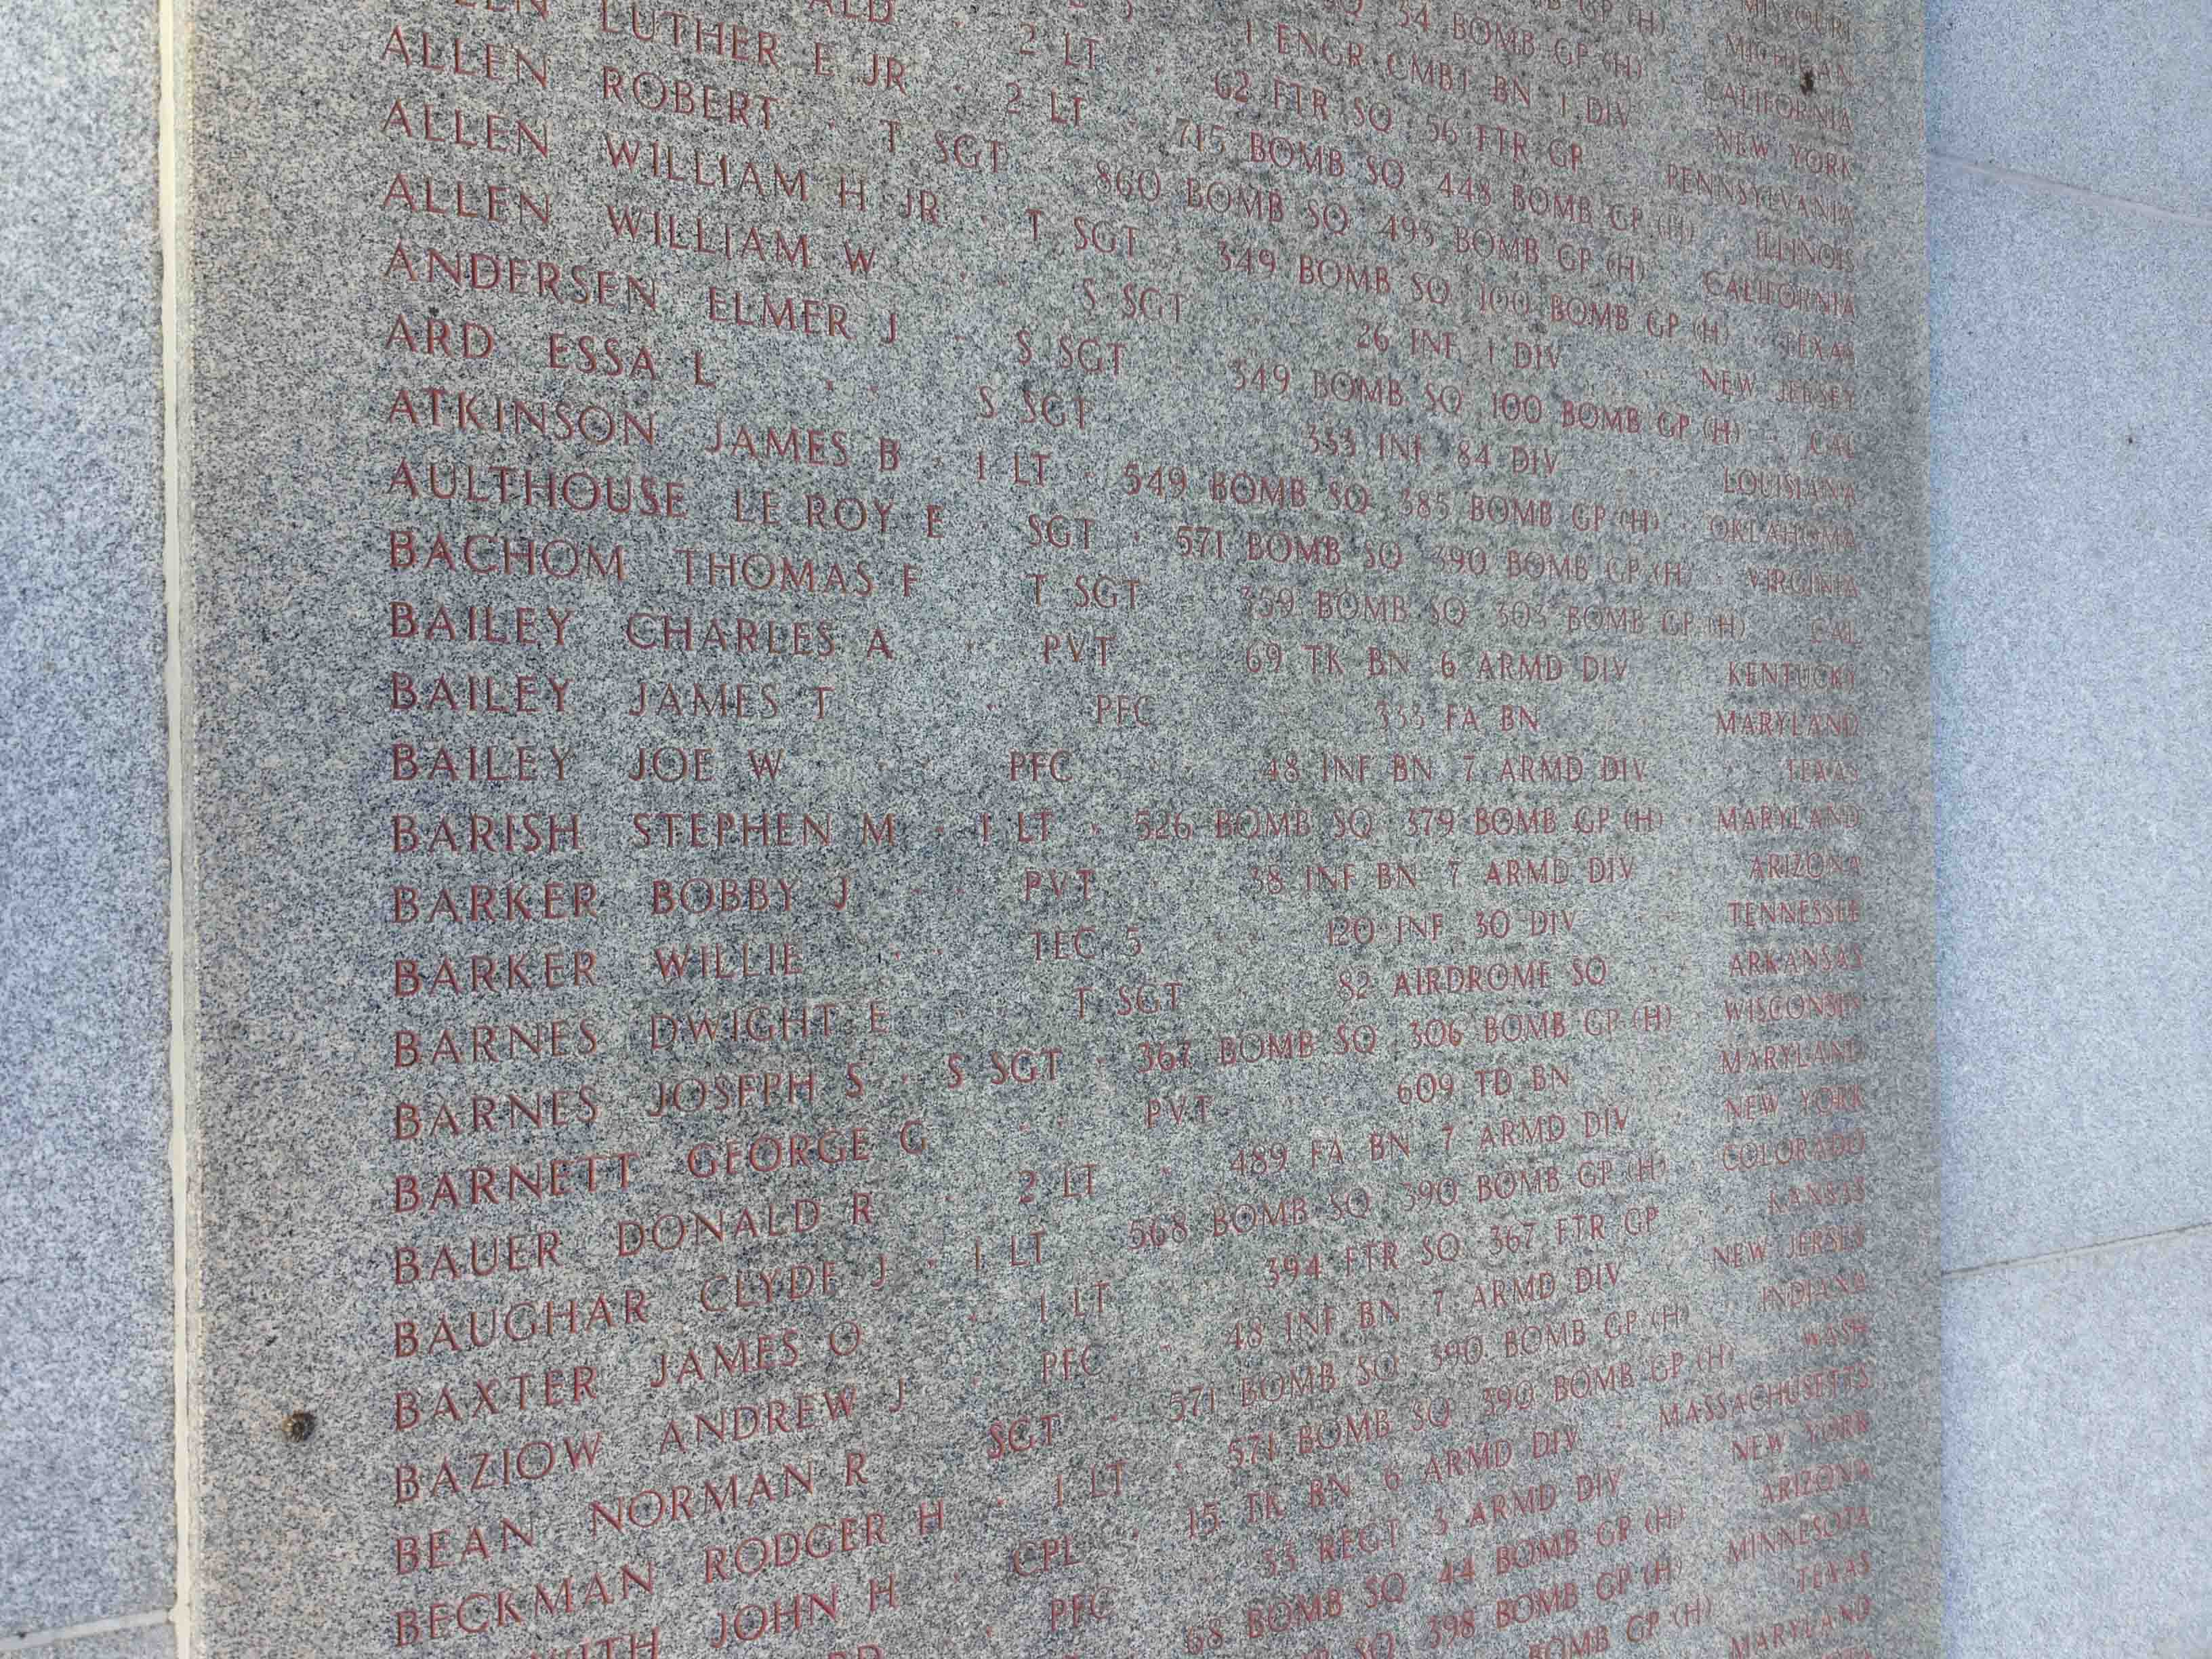 MISSOURI
BOMB GP (H) MICHIGAN
34 BOMB GP (H) CALIFORNIA
1 ENGR CMBT BN 1 DIV NEW YORK
2 LT 62 FTR SQ 56 FTR GP PENNSYLVANIA
ALLEN LUTHER E JR · 2 LT · 715 BOMB SQ 448 BOMB GP (H) · ILLINOIS
ALLEN ROBERT · T SGT · 860 BOMB SQ 493 BOMB GP (H) CALIFORNIA
ALLEN WILLIAM H JR · T SGT · 349 BOMB SQ 100 BOMB GP (H) · TEXAS
ALLEN WILLIAM W · · S SGT · · 26 INF 1 DIV · NEW JERSEY
ANDERSEN ELMER J · S SGT · 349 BOMB SQ 100 BOMB GP (H) · CAL
ARD ESSA L · · S SGT · 333 INF 84 DIV · LOUISIANA
ATKINSON JAMES B · 1 LT · 549 BOMB SQ 385 BOMB GP (H) · OKLAHOMA
AULTHOUSE LE ROY E SGT · 571 BOMB SQ 390 BOMB GP (H) · VIRGINIA
BACHOM THOMAS F T SGT 359 BOMB SQ 303 BOMB GP (H) CAL
BAILEY CHARLES A · PVT 69 TK BN 6 ARMD DIV · KENTUCKY
BAILEY JAMES T · PFC · 333 FA BN · MARYLAND
BAILEY JOE W · · PFC · 48 INF BN 7 ARMD DIV · TEXAS
BARISH STEPHEN M · 1 LT · 526 BOMB SQ 379 BOMB GP (H) · MARYLAND
BARKER BOBBY J · · PVT · 38 INF BN 7 ARMD DIV · ARIZONA
BARKER WILLIE · · TEC 5 · · 120 INF 30 DIV · TENNESSEE
BARNES DWIGHT E · · T SGT · 82 AIRDROME SQ · ARKANSAS
BARNES JOSEPH S · S SGT · 367 BOMB SQ 306 BOMB GP (H) · WISCONSIN
BARNETT GEORGE G · · PVT · 609 TD BN · MARYLAND
BAUER DONALD R · 2 LT · 489 FA BN 7 ARMD DIV · NEW YORK
BAUGHAR CLYDE J · 1 LT · 568 BOMB SQ 390 BOMB GP (H) · COLORADO
BAXTER JAMES O · 1 LT · 394 FTR SQ 367 FTR GP · KANSAS
BAZIOW ANDREW J · PFC · 48 INF BN 7 ARMD DIV · NEW JERSEY
BEAN NORMAN R · SGT · 571 BOMB SQ 390 BOMB GP (H) · INDIANA
BECKMAN RODGER H · 1 LT · 571 BOMB SQ 390 BOMB GP (H) · WASH
JOHN H · CPL · 15 TK BN 6 ARMD DIV · MASSACHUSETTS
PFC · 33 REGT 3 ARMD DIV · NEW YORK
68 BOMB SQ 44 BOMB GP (H) · ARIZONA
SQ 398 BOMB GP (H) · MINNESOTA
BOMB GP (H) · TEXAS
MARYLAND